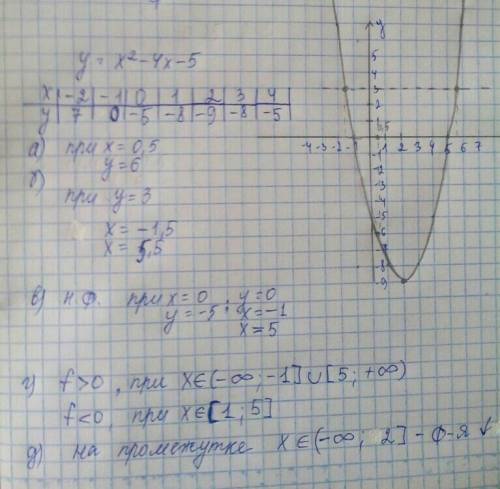 y = x²-4x-5
x | -2 | -1 | 0 | 1 | 2 | 3 | 4
y | 7 | 0 | -5 | -8 | -9 | -8 | -5
а) при x = 0,5
y = 6
б)
при y = 3
x = -1,5
x = 5,5
в) н.ф. при x = 0 ; y = 0
y = -5 ; x = -1
x = 5
г) f > 0 , при x∈(-∞; -1]∪[5; +∞)
f < 0, при x∈[1; 5]
д) на промежутке x∈(-∞; 2] - ф-я ↓
y
5
4
3
2
1
0,5
-4 -3 -2 -1 1 2 3 4 5 6 7
-1
-2
-3
-4
-5
-6
-7
-8
-9